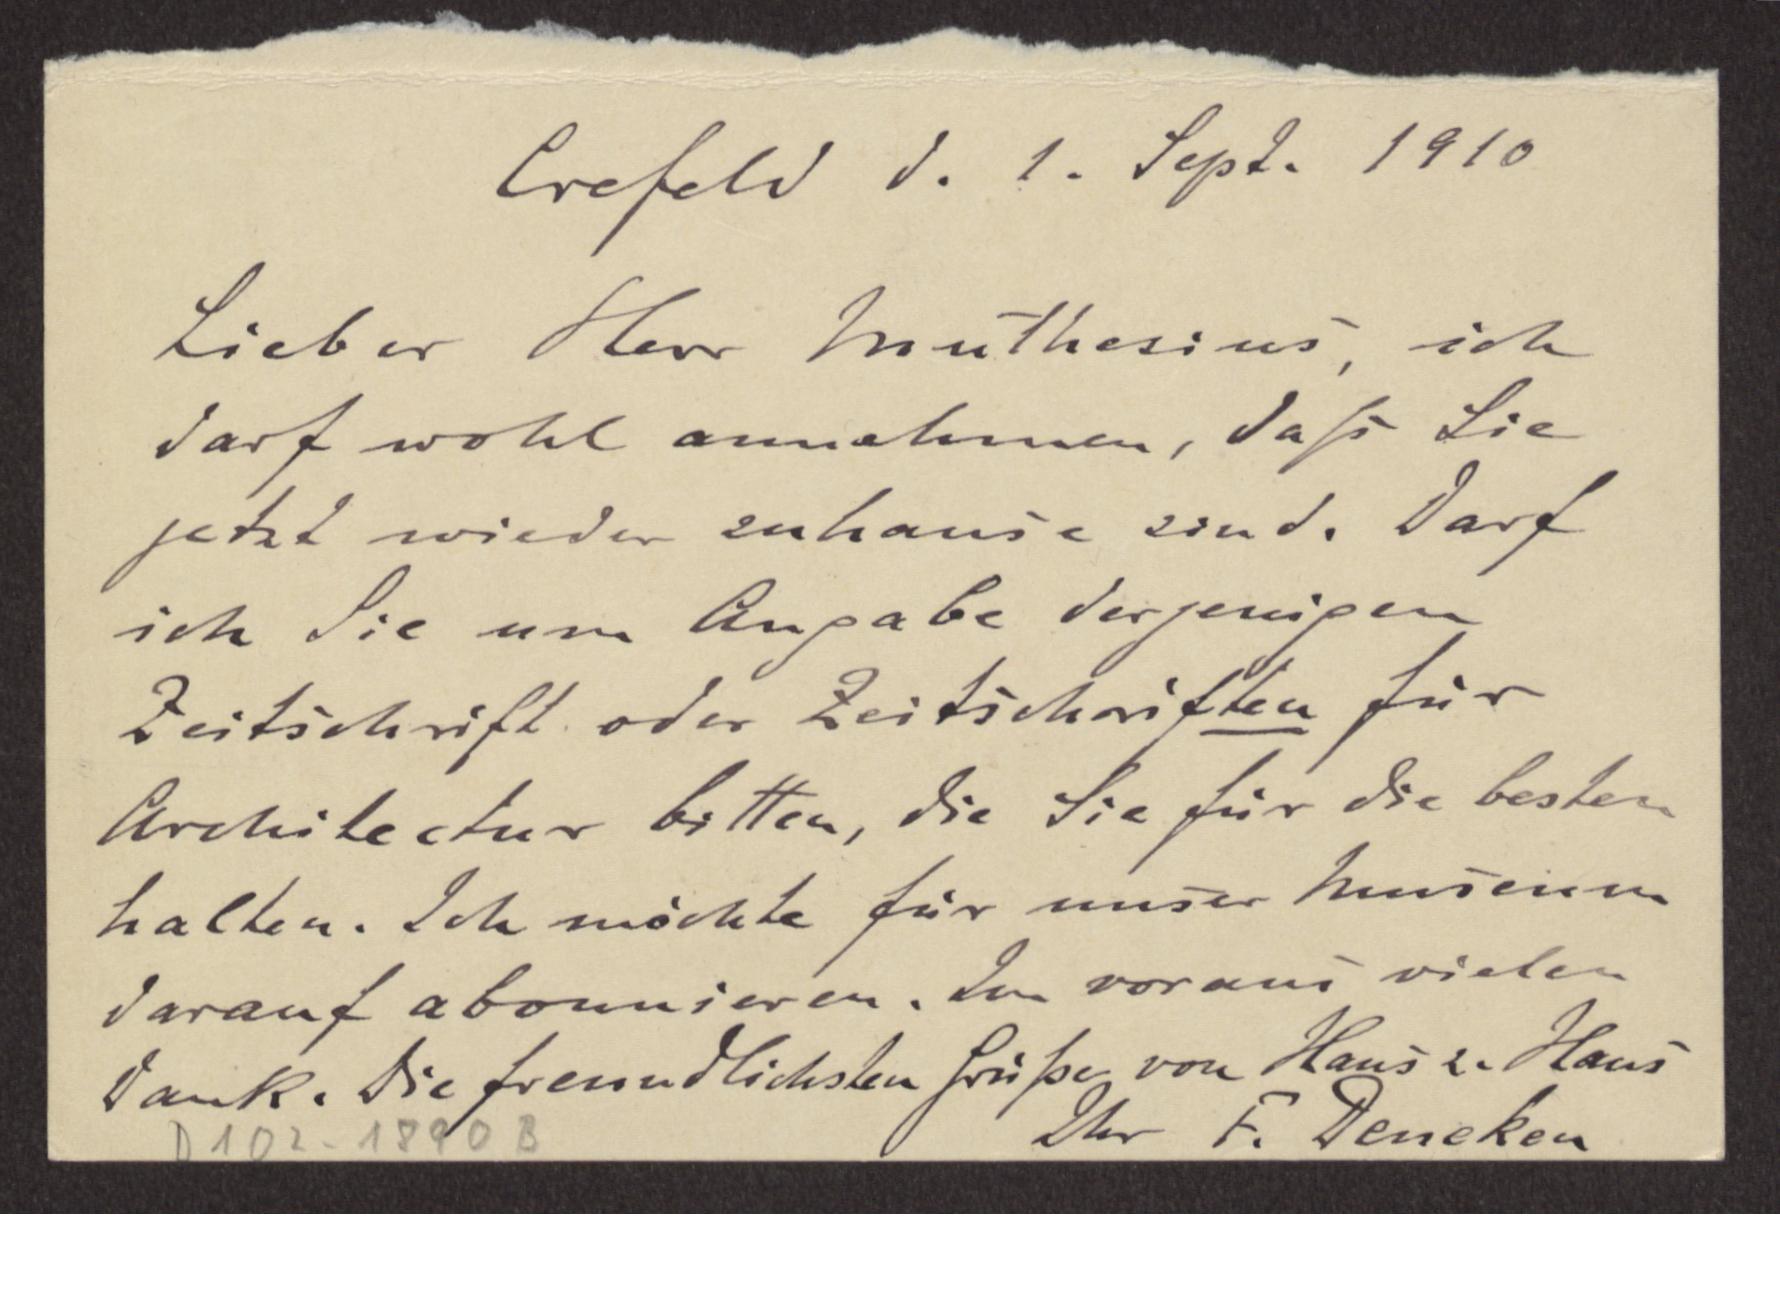 Crefeld d. 1. Sept. 1910
Lieber Herr Muthesius, ich
darf wohl annehmen, daß Sie
jetzt wieder zuhause sind. Darf
ich Sie um Angabe derjenigen
Zeitschrift oder Zeitschriften für
Architectur bitten, die Sie für die besten
halten. Ich möchte für unser Museum
darauf abonnieren. Im voraus vielen
Dank. Die freundlichsten Grüße von Haus z. Haus
Ihr F. Deneken
D 102-1890 B